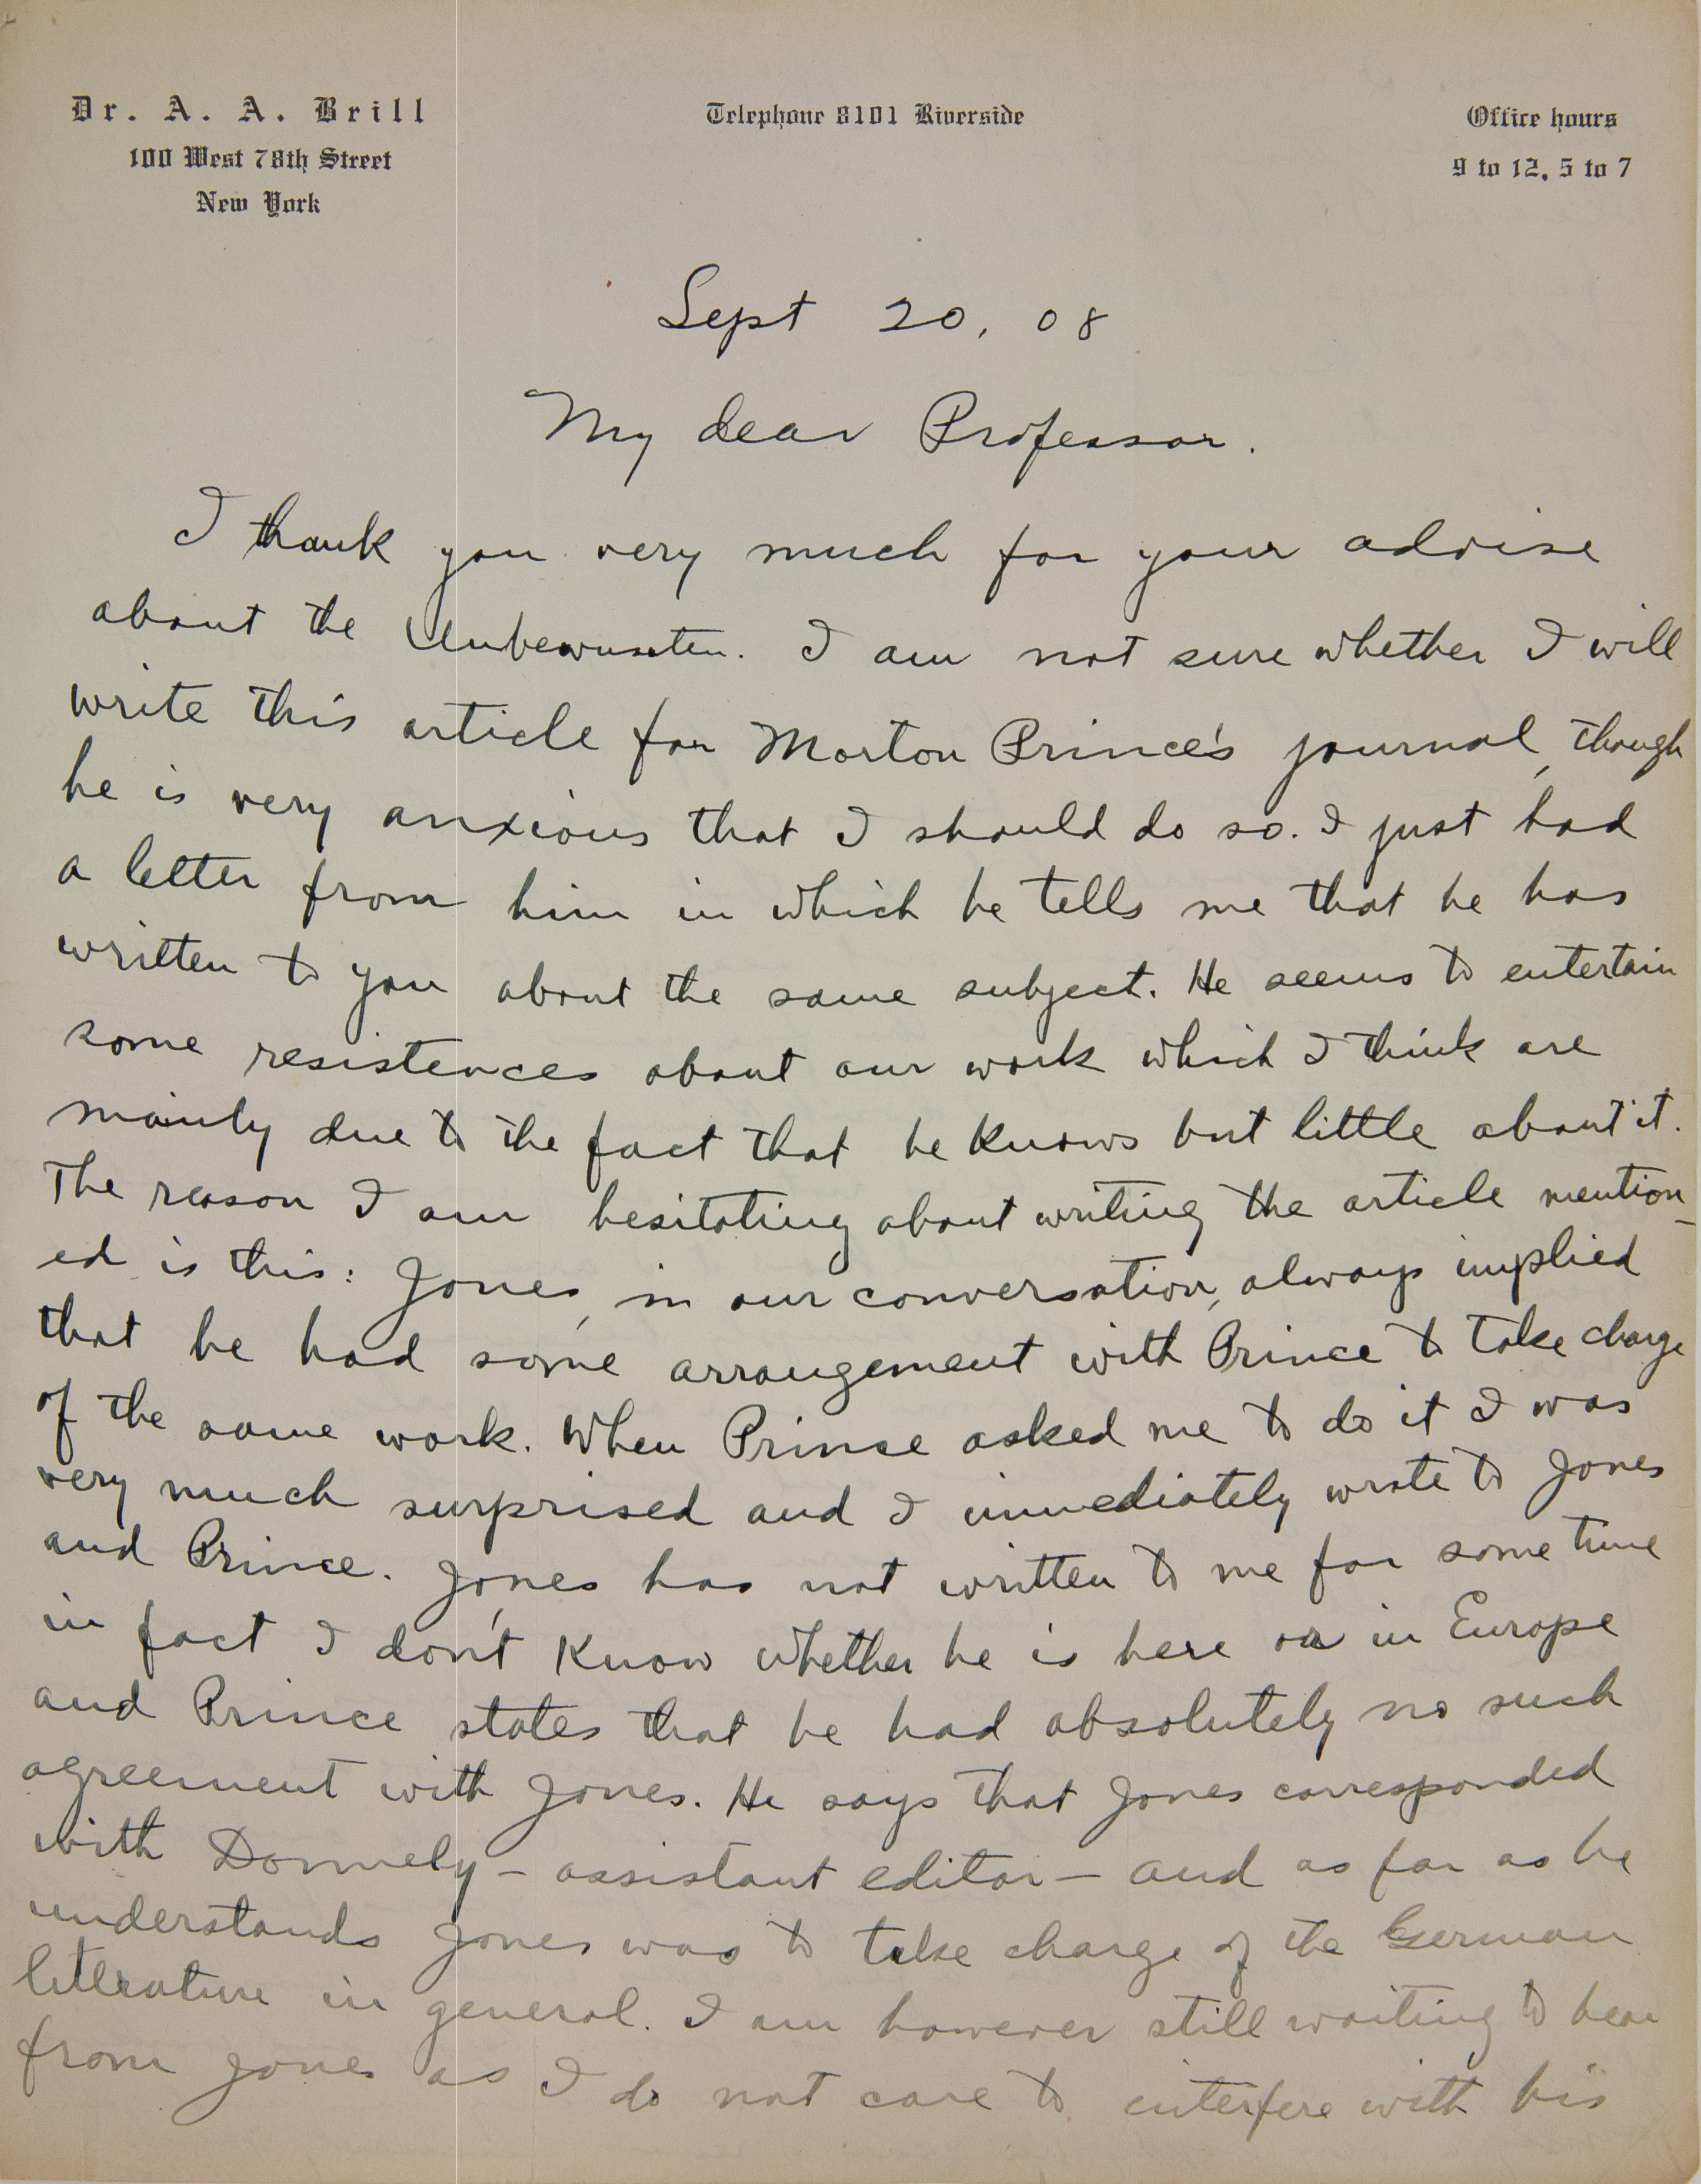 Dr. A. A. Brill
100 West 78th Street
New York
Telephone 8101 Riverside
Office hours
9 to 12, 5 to 7
Sept 20, 08
My dear Professor.
I thank you very much for your advise
about the Unbewussten. I am not sure whether I will
write this article for Morton Prince's journal, though
he is very anxious that I should do so. I just had
a letter from him in which he tells me that he has
written to you about the same subject. He seems to entertain
some resistences about our work which I think are
mainly due to the fact that he knows but little about it.
The reason I am hesitating about writing the article mention-
ed is this: Jones, in our conversation, always implied
that he had some arrangement with Prince to take charge
of the same work. When Prince asked me to do it I was
very much surprised and I immediately wrote to Jones
and Prince. Jones has not written to me for some time
in fact I don't know whether he is here or in Europe
and Prince states that he had absolutely no such
agreement with Jones. He says that Jones corresponded
with Donnely – assistant editor – and as far as he
understands Jones was to take charge of the German
literature in general. I am however still waiting to hear
from Jones as I do not care to interfere with his